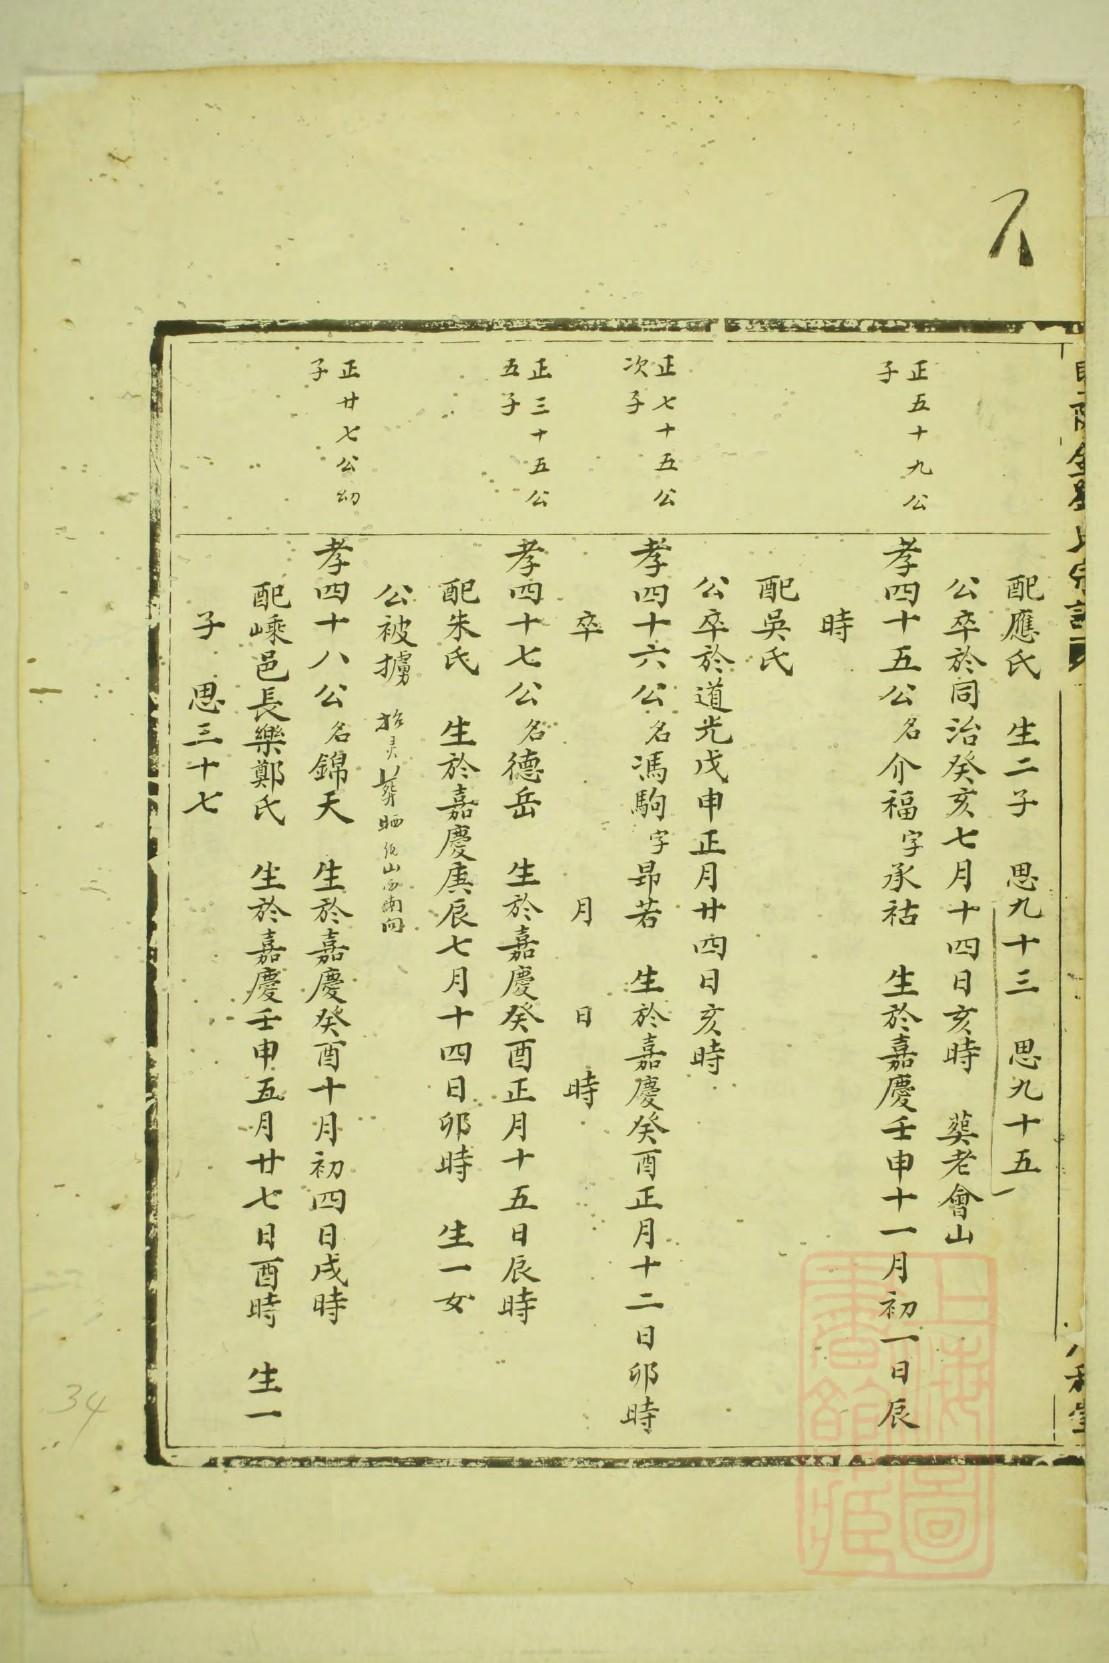 配應氏　生二子　思九十三　思九十五
公卒於同治癸亥七月十四日亥時　葬老會山
正五十九公
子
孝四十五公名介福字承祜　生於嘉慶壬申十一月初一日辰
時
配吳氏
公卒於道光戊申正月廿四日亥時
正七十五公
次子
孝四十六公名馮駒字昂若　生於嘉慶癸酉正月十二日卯時
卒　月　日　時
正三十五公
五子
孝四十七公名德岳　生於嘉慶癸酉正月十五日辰時
配朱氏　生於嘉慶庚辰七月十四日卯時　生一女
公被擄　招灵葬晒山南向
正廿七公幼
子
孝四十八公名錦天　生於嘉慶癸酉十月初四日戌時
配嵊邑長樂鄭氏　生於嘉慶壬申五月廿七日酉時　生一
子　思三十七
上海圖書館藏
34